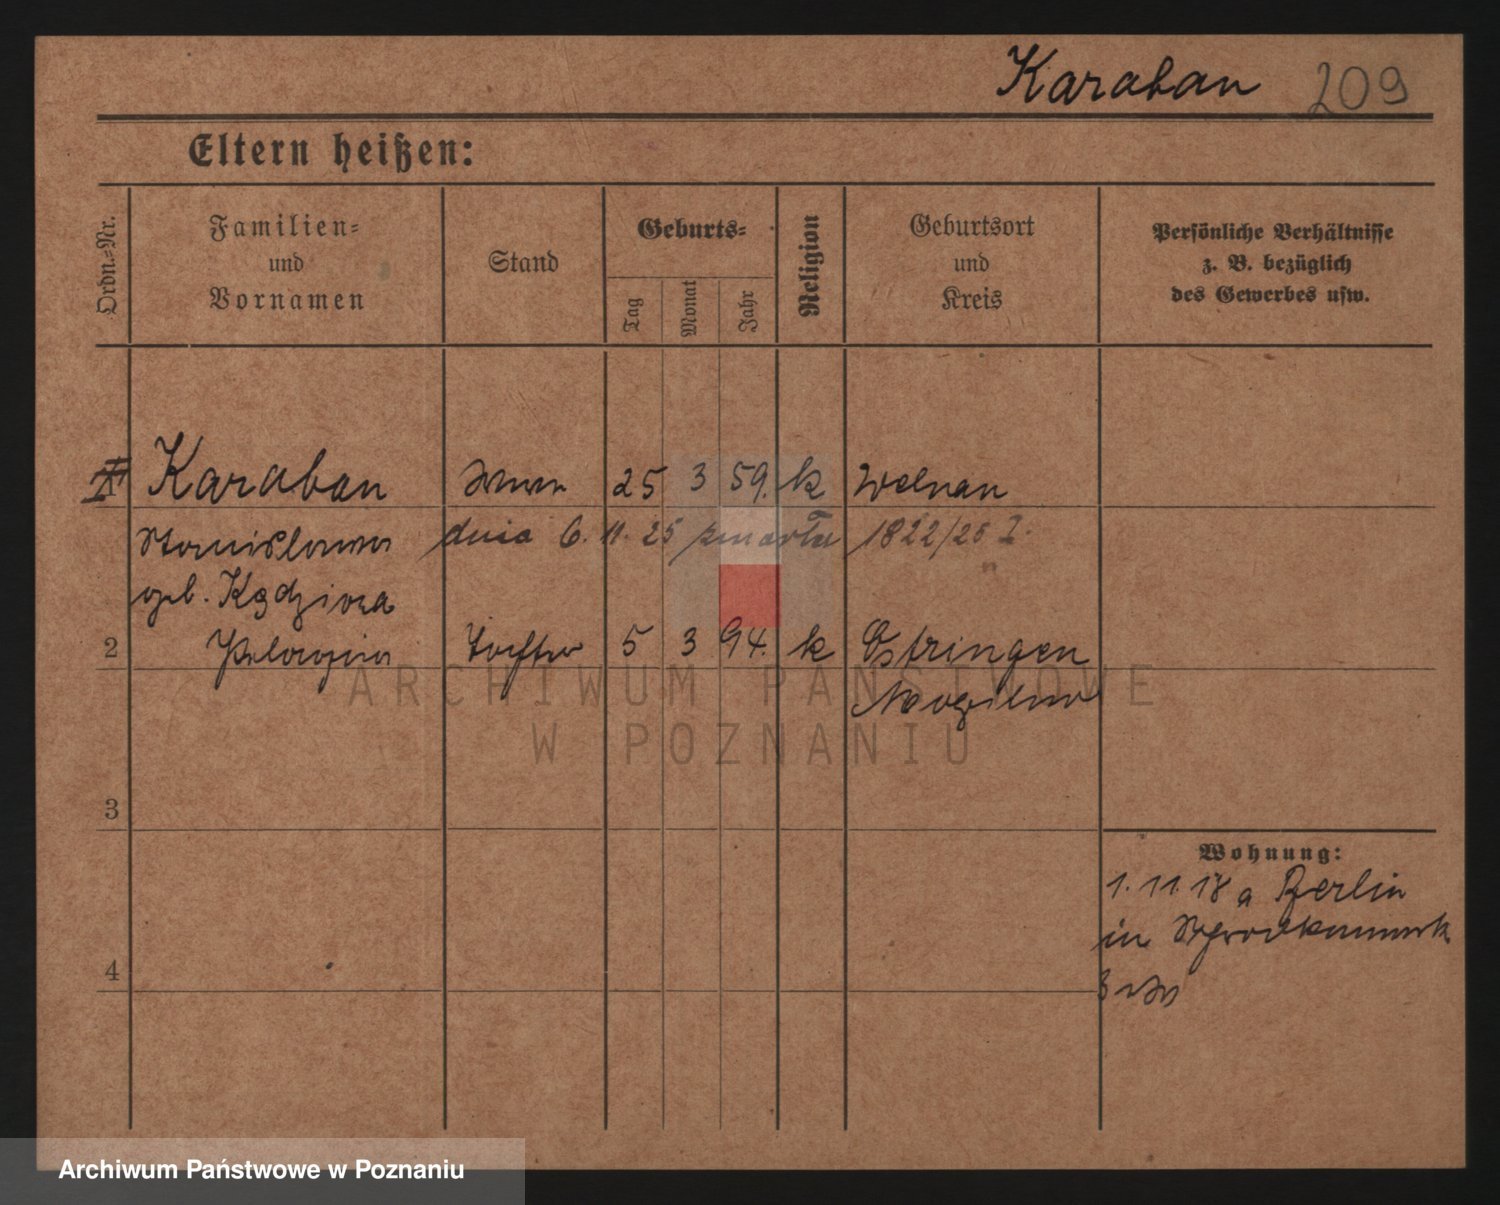 Karaban 209
Eltern heißen:
Ordn.-Nr.
Familien-
und
Vornamen
Stand
Geburts-
Tag
Monat
Jahr
Religion
Geburtsort
und
Kreis
Persönliche Verhältnisse
z. B. bezüglich
des Gewerbes usw.
Karaban 25 3 59. k Welnau
Stanislawa dnia 6. 11. 25 zmarła 1822/25 I.
geb. Kędziora
2 Pelagia Tochter 5 3 94. k Ostringen
Mogilno
3
Wohnung:
1. 11. 18 a Berlin
in
4
ARCHIWUM PAŃSTWOWE
W POZNANIU
Archiwum Państwowe w Poznaniu